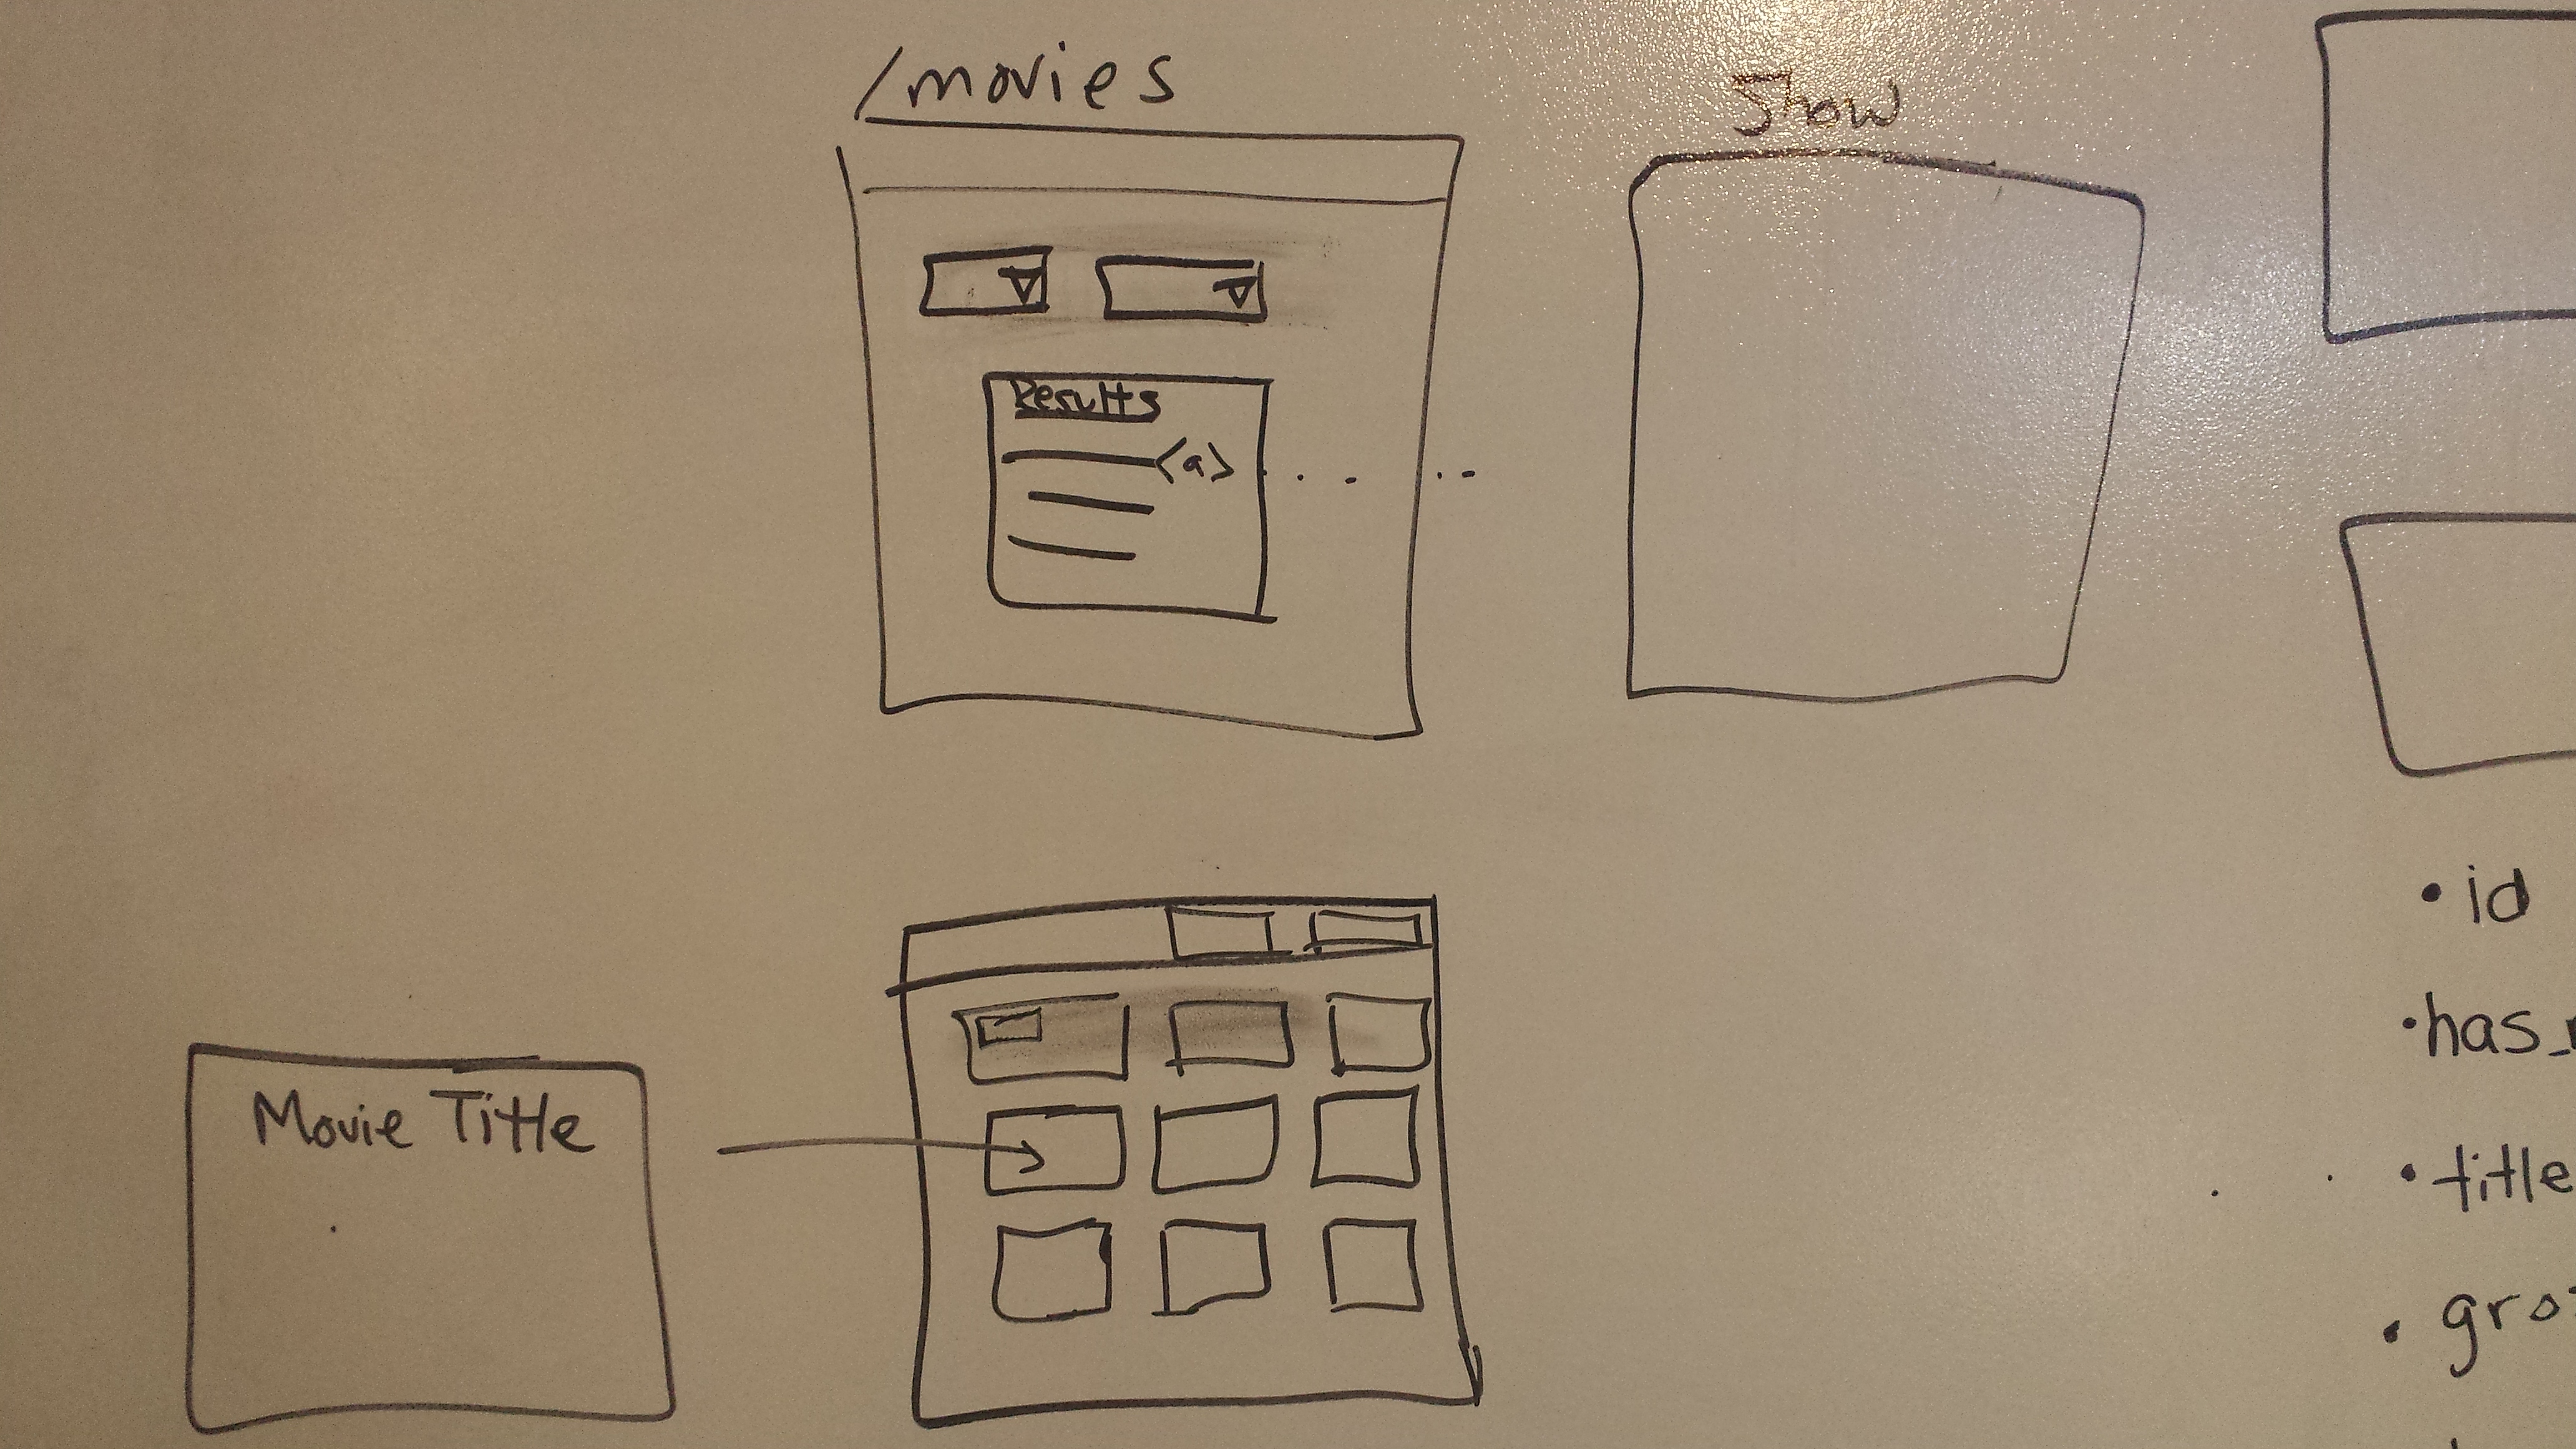 /movies
Show
Results
<a>
Movie Title
• id
• title